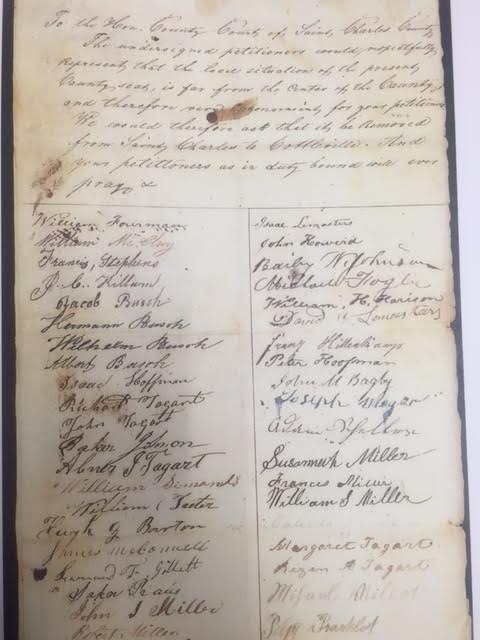 To the Hon. County Court of, Saint, Charles County
The undersigned petitioners would respectfully
represent, that the local situation of, the present
County, seat, is far from the Center of the County,
and therefore very for your petitioners
We would therefore ask that it, be Removed
from Saint, Charles to Cottleville. And
your petitioners as in duty bound will ever
pray, &
William
William
Francis, Stephens
J. C. Killum
Jacob Busch
Hermann Busch
Wilhelm Busch
Albert Busch
Isaac Hoffman
Richard Tagart
John Tagart
Baker
Abner S Tagart
William
William C
Hugh G Barton
James McConnell
F. Gillett
John S Miller
Robert Miller
Isaac Lemasters
John Howerd
Bailey W. Johnson
Michael Fogle
William, H. Harison
David Lemasters
Franz
Peter Hoofman
John M Bagby
Joseph
Susannah Miller
Francis
William S Miller
Margaret Tagart
A Tagart